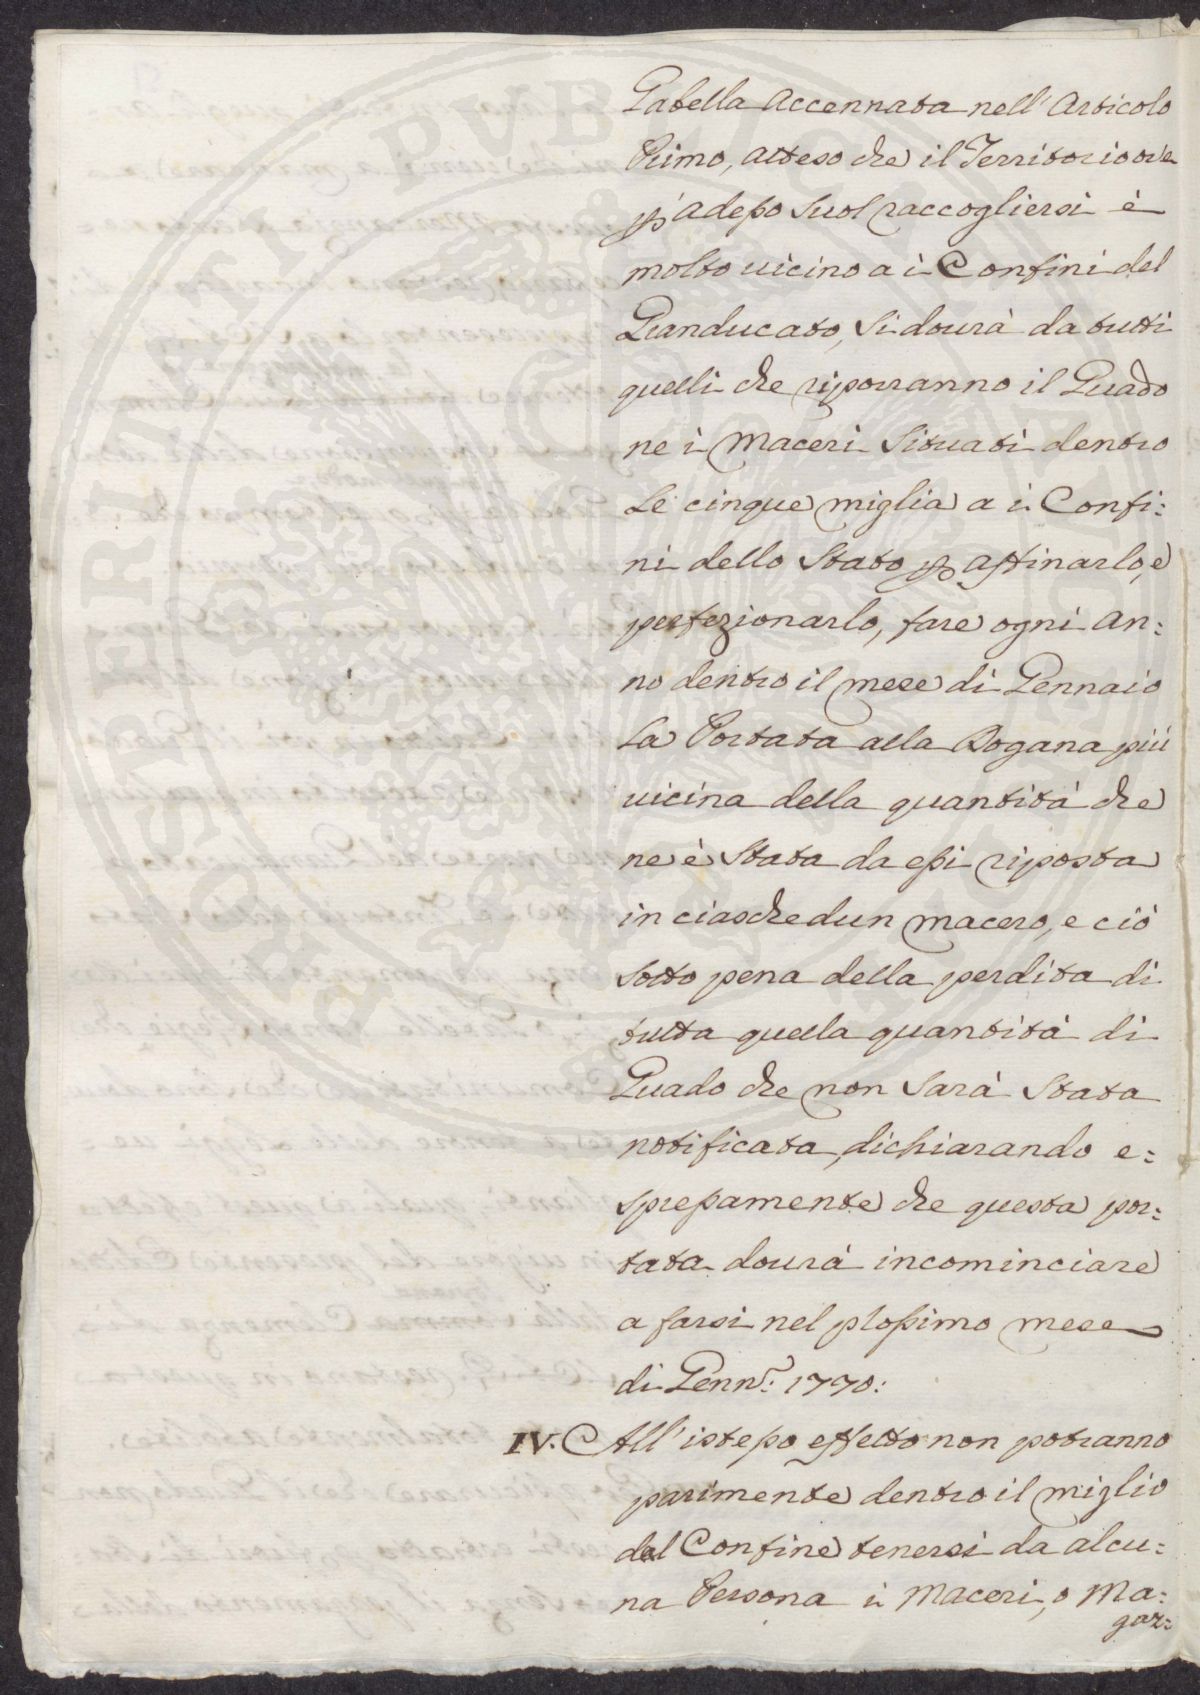 Gabella Accennata nell' Articolo
Primo, atteso che il Territorio ove
p adesso suol raccogliersi è
molto vicino a i Confini del
Granducato, si dourà da tutti
quelli che riporranno il Guado
ne i Maceri Situati dentro
le cinque miglia a i Confi:
ni dello Stato p affinarlo, e
perfezionarlo, fare ogni An:
no dentro il mese di Gennaio
la Portata alla Dogana più
uicina della quantità che
ne è Stata da essi riposta
in ciaschedun macero, e ciò
sotto pena della perdita di
tutta quella quantità di
Guado che non Sarà Stata
notificata, dichiarando e:
spressamente che questa por:
tata dourà incominciare
a farsi nel prossimo mese
di Genn.: 1770:
IV. All' istesso effetto non potranno
parimente dentro il miglio
del Confine tenersi da alcu:
na Persona i Maceri, o Ma:
gaz: